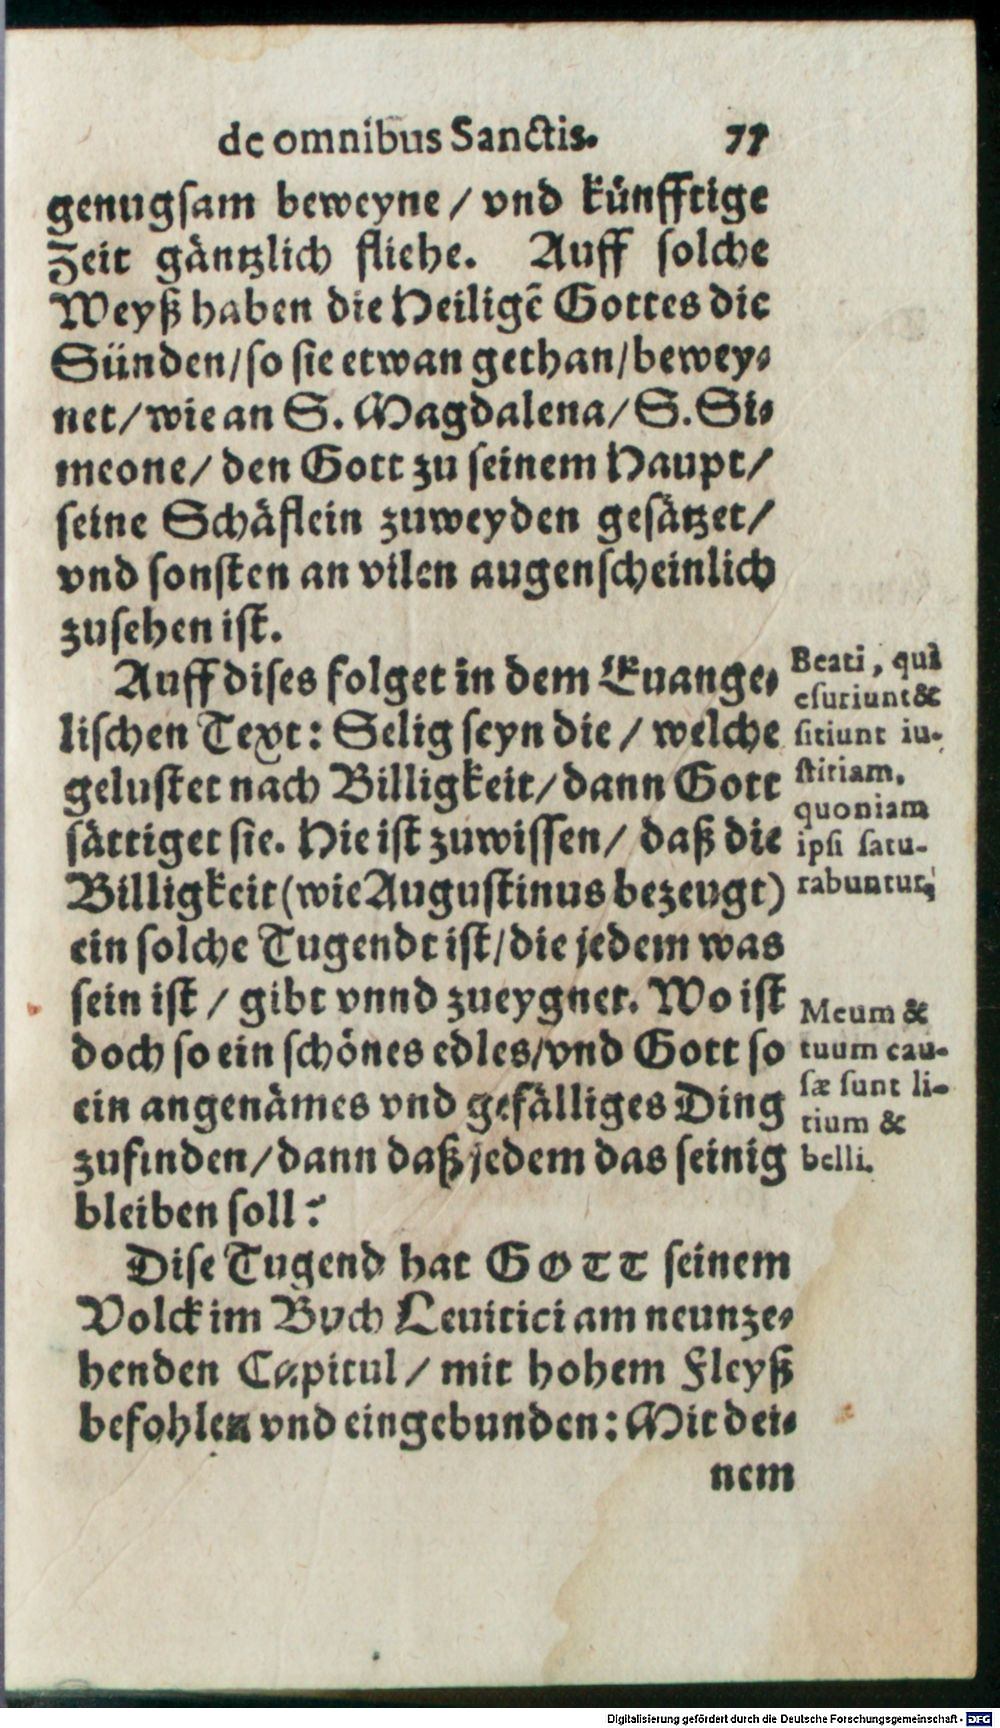 de omnibus Sanctis. 77
genugsam beweyne / vnd künfftige
Zeit gäntzlich fliehe. Auff solche
Weyß haben die Heiligē Gottes die
Sünden/so sie etwan gethan/bewey⸗
net/wie an S. Magdalena/S. Si⸗
meone/den Gott zu seinem Haupt/
seine Schäflein zuweyden gesätzet/
vnd sonsten an vilen augenscheinlich
zusehen ist.
Auff dises folget in dem Euange⸗
lischen Text: Selig seyn die / welche
gelustet nach Billigkeit/dann Gott
sättiget sie. Hie ist zuwissen/ daß die
Billigkeit (wie Augustinus bezeugt)
ein solche Tugendt ist/die jedem was
sein ist / gibt vnnd zueygnet. Wo ist
doch so ein schönes edles/vnd Gott so
ein angenämes vnd gefälliges Ding
zufinden/dann daß jedem das seinig
bleiben soll?
Dise Tugend hat GOTT seinem
Volck im Buch Leuitici am neunze⸗
henden Capitul/ mit hohem Fleyß
befohlen vnd eingebunden: Mit dei⸗
nem
Beati, qui
esuriunt &
sitiunt iu-
stitiam,
quoniam
ipsi satu-
rabuntur,
Meum &
tuum cau-
sæ sunt li-
tium &
belli.
Digitalisierung gefördert durch die Deutsche Forschungsgemeinschaft - DFG